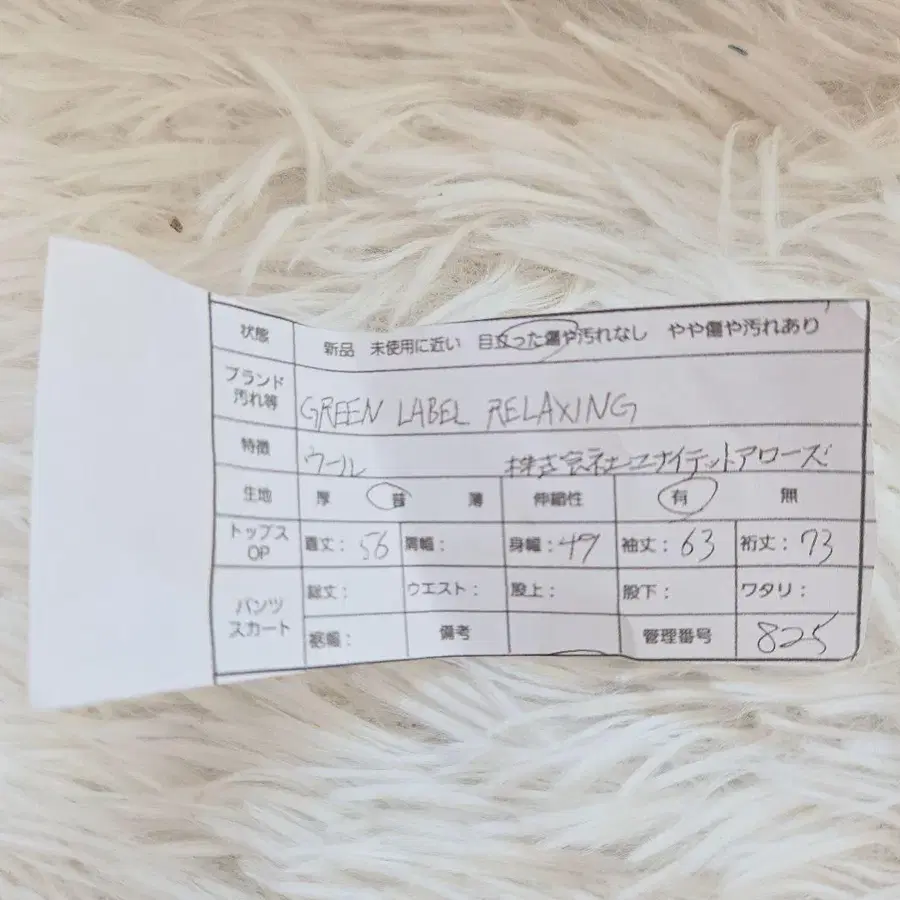 状態 新品 未使用に近い 目立った傷や汚れなし やや傷や汚れあり
ブランド
汚れ等 GREEN LABEL RELAXING
特徴 ウール 株式会社ユナイテットアローズ
生地 厚 普 薄 伸縮性 有 無
トップス
OP 着丈: 56 肩幅: 身幅: 49 袖丈: 63 裄丈: 73
パンツ
スカート 総丈: ウエスト: 股上: 股下: ワタリ:
裾幅: 備考 管理番号 825